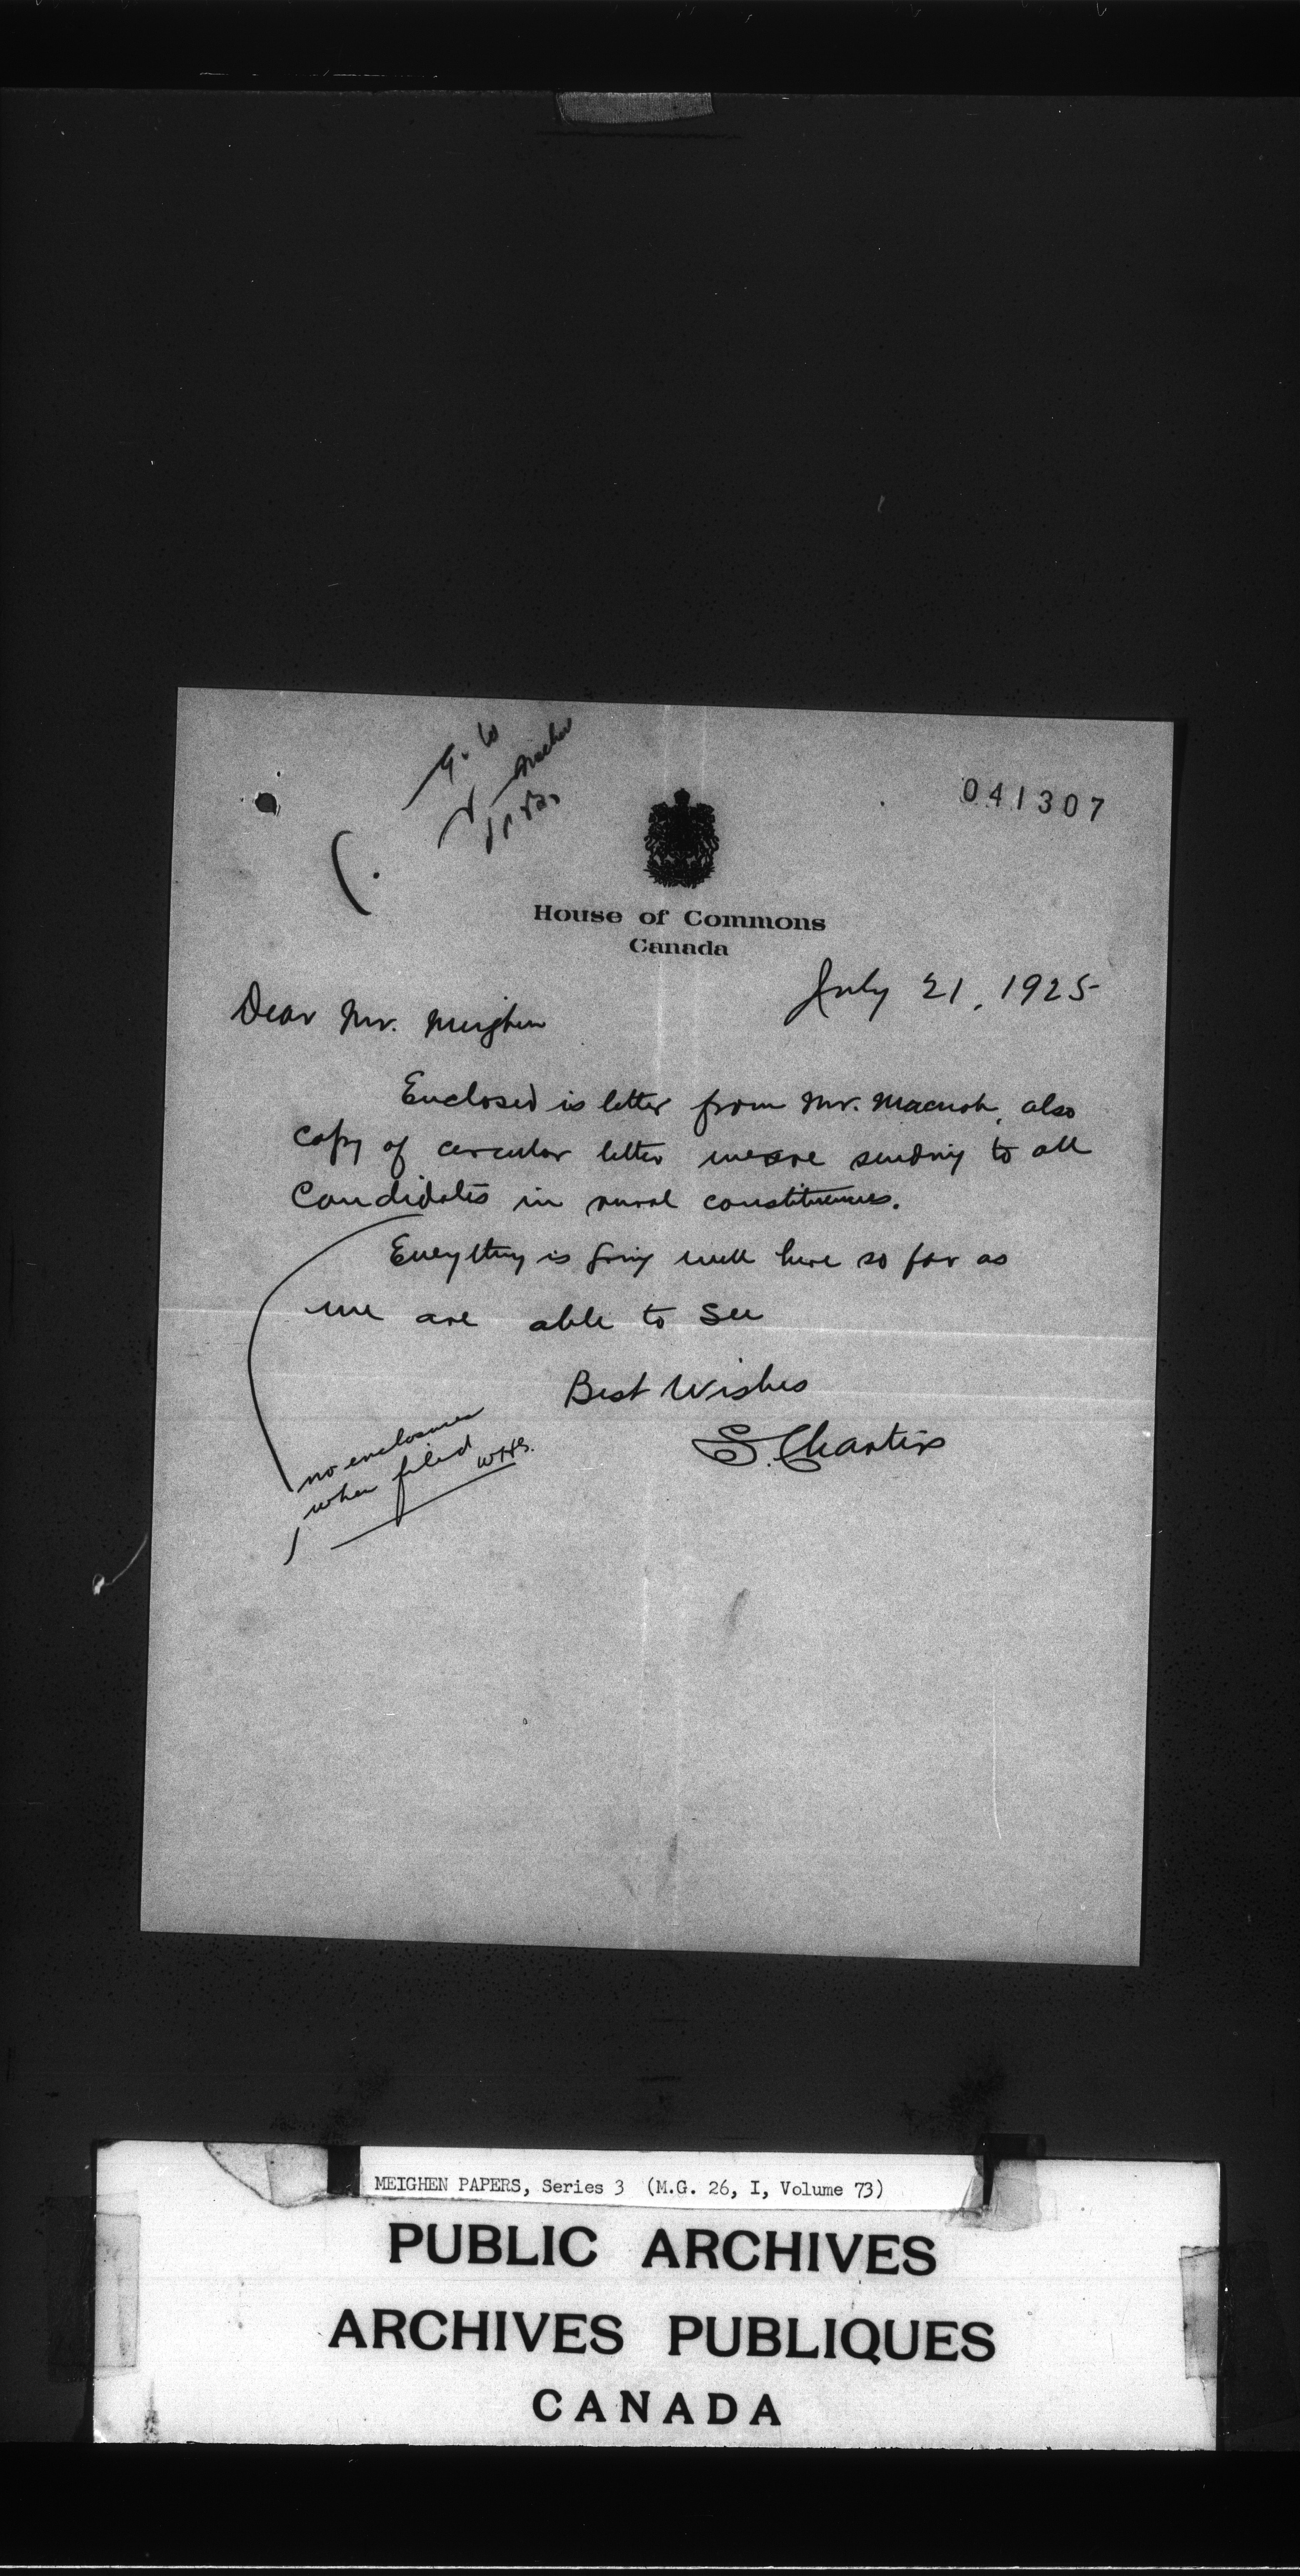 041307
House of Commons
Canada
July 21, 1925
Dear Mr. Meighen
Enclosed is letter from Mr. also
copy of circular letter we are sending to all
Candidates in rural constituencies.
Everything is going well here so far as
we are able to see
Best Wishes
S. Charters
no enclosures
when filed
MEIGHEN PAPERS, Series 3 (M.G. 26, I, Volume 73)
PUBLIC ARCHIVES
ARCHIVES PUBLIQUES
CANADA